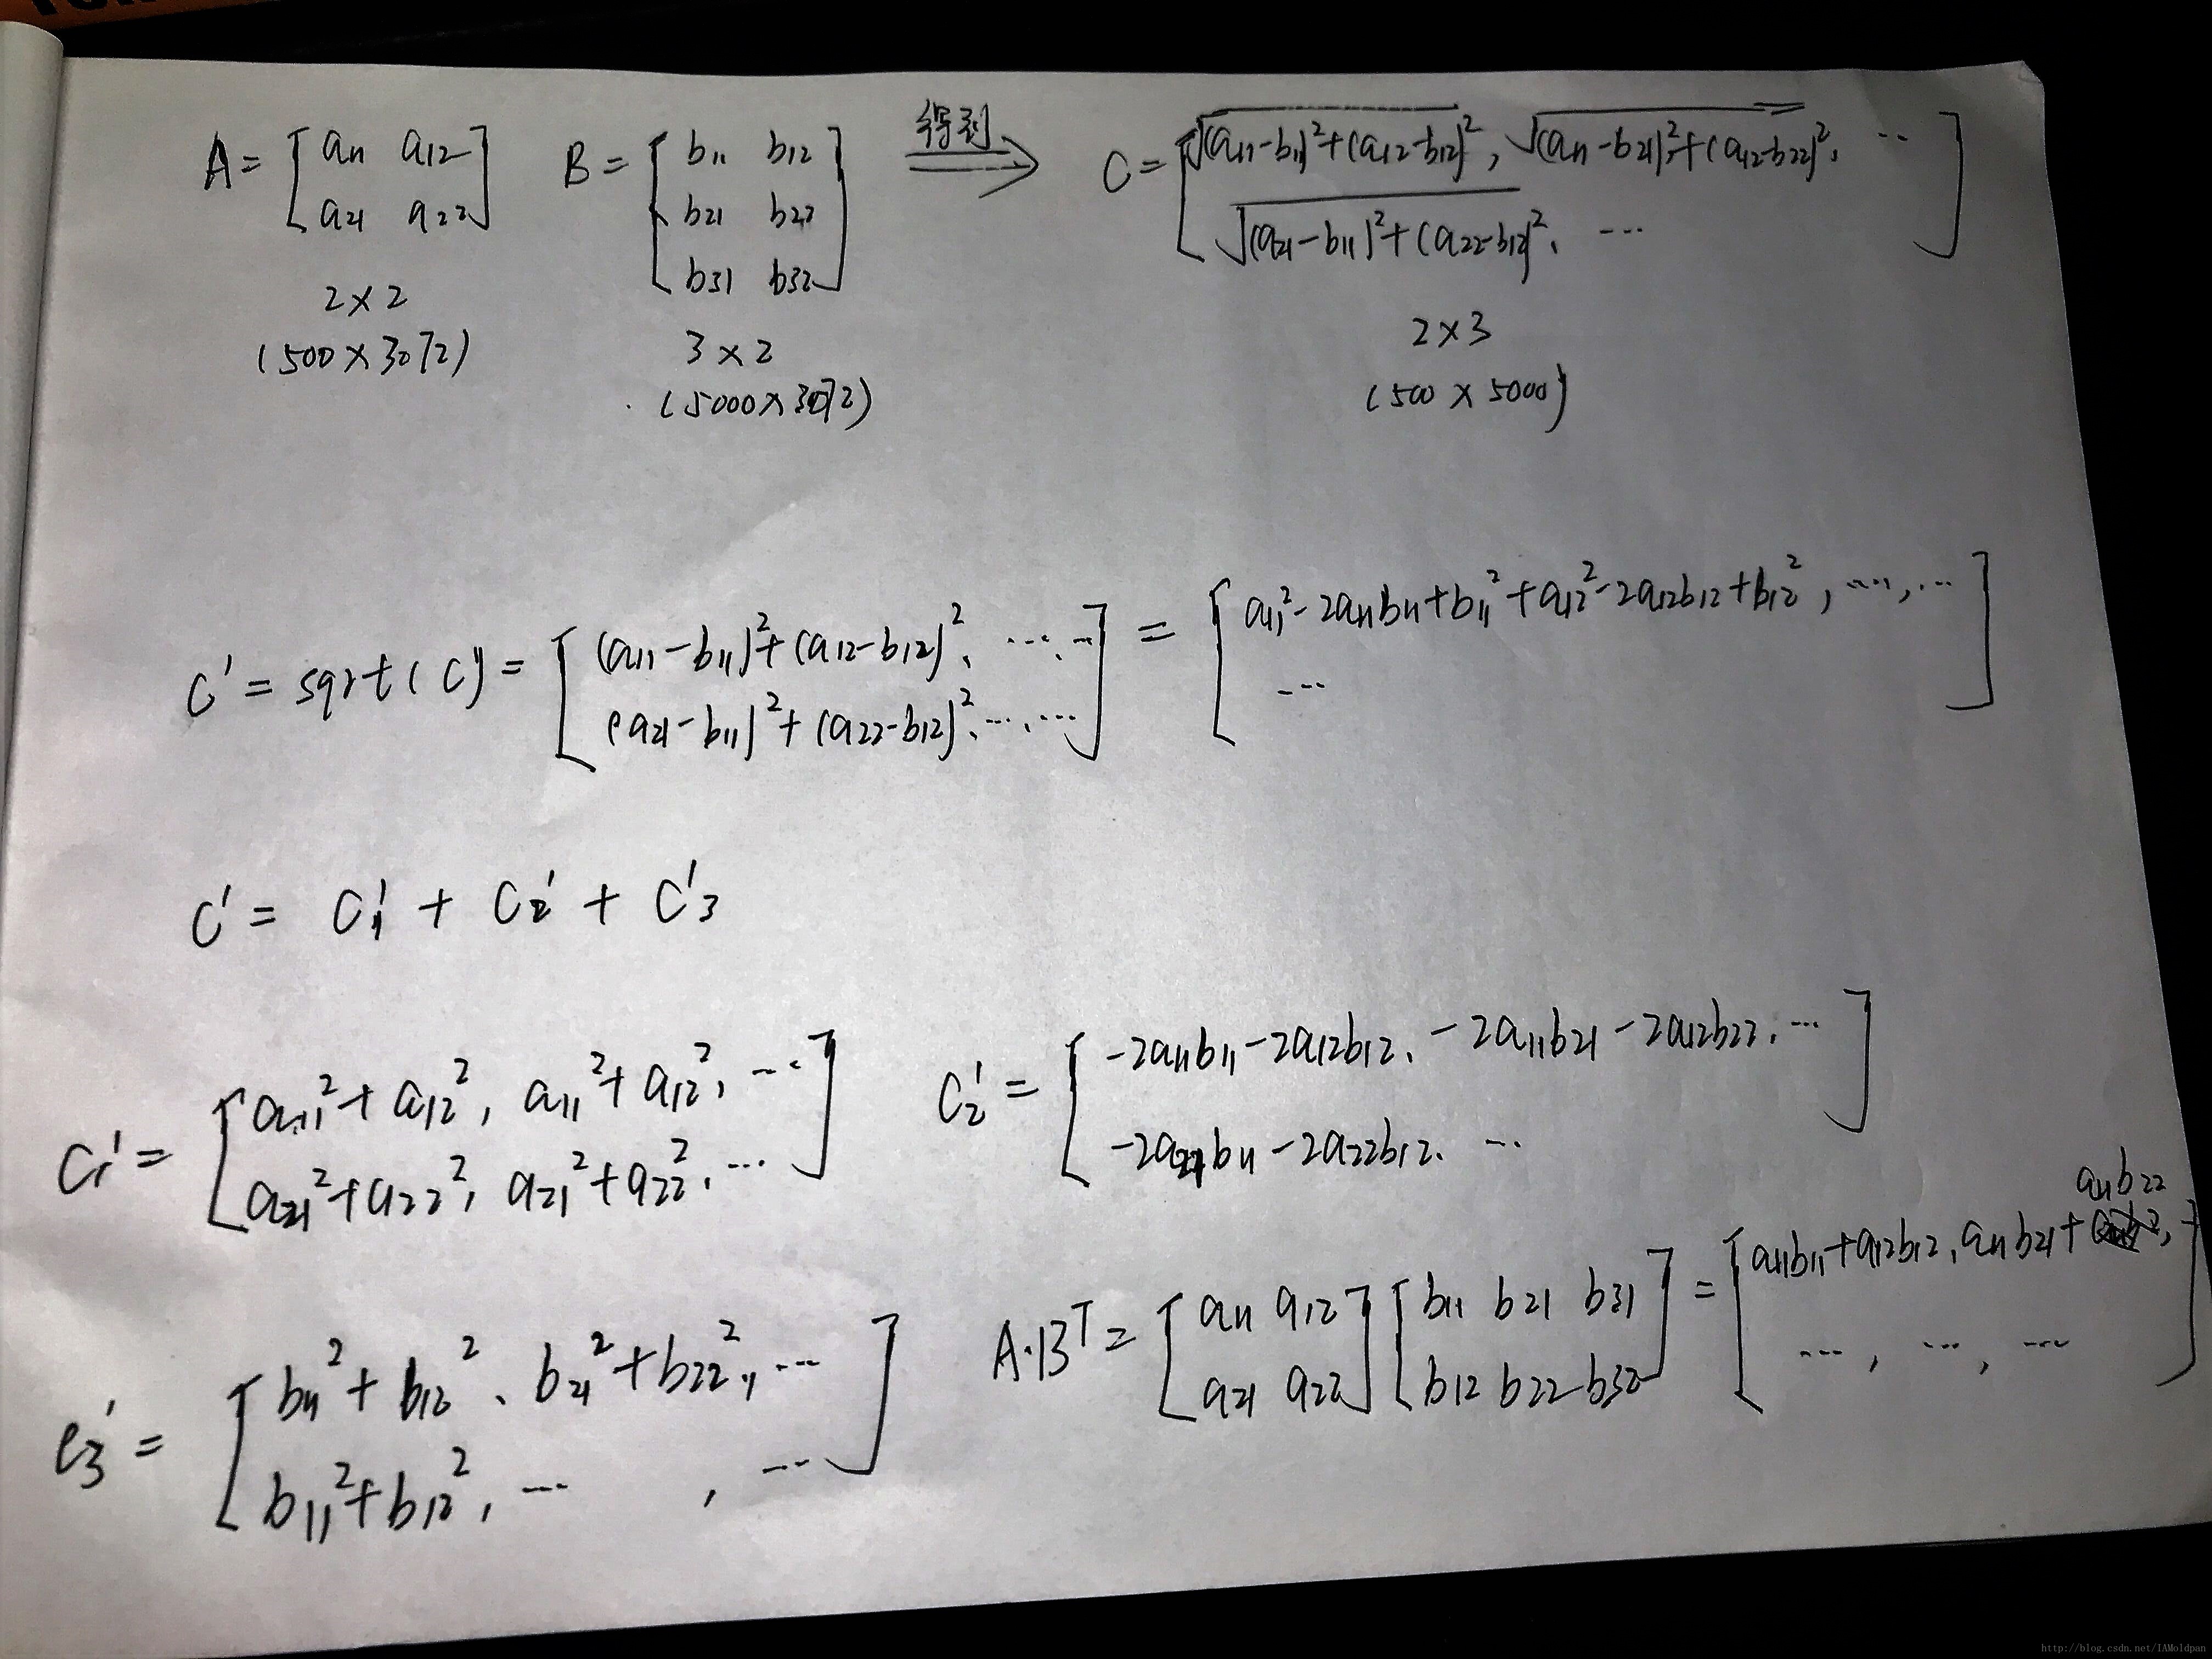 A = [a11 a12; a21 a22] B = [b11 b12; b21 b22; b31 b32] 得到 ⇒ C = [√(a11-b11)²+(a12-b12)², √(a11-b21)²+(a12-b22)², ...; √(a21-b11)²+(a22-b12)², ...]
2×2 3×2 2×3
(500×3072) (5000×3072) (500×5000)
C' = sqrt(C) = [(a11-b11)²+(a12-b12)², ..., ...; (a21-b11)²+(a22-b12)², ..., ...] = [a11²-2a11b11+b11²+a12²-2a12b12+b12², ..., ...; ...]
C' = C1' + C2' + C3'
C1' = [a11²+a12², a11²+a12², ...; a21²+a22², a21²+a22², ...] C2' = [-2a11b11-2a12b12, -2a11b21-2a12b22, ...; -2a21b11-2a22b12, ...]
C3' = [b11²+b12², b21²+b22², ...; b11²+b12², ..., ...] A·B^T = [a11 a12; a21 a22][b11 b21 b31; b12 b22 b32] = [a11b11+a12b12, a11b21+a11b22, ; ..., ..., ...]
http://blog.csdn.net/IAMoldpan